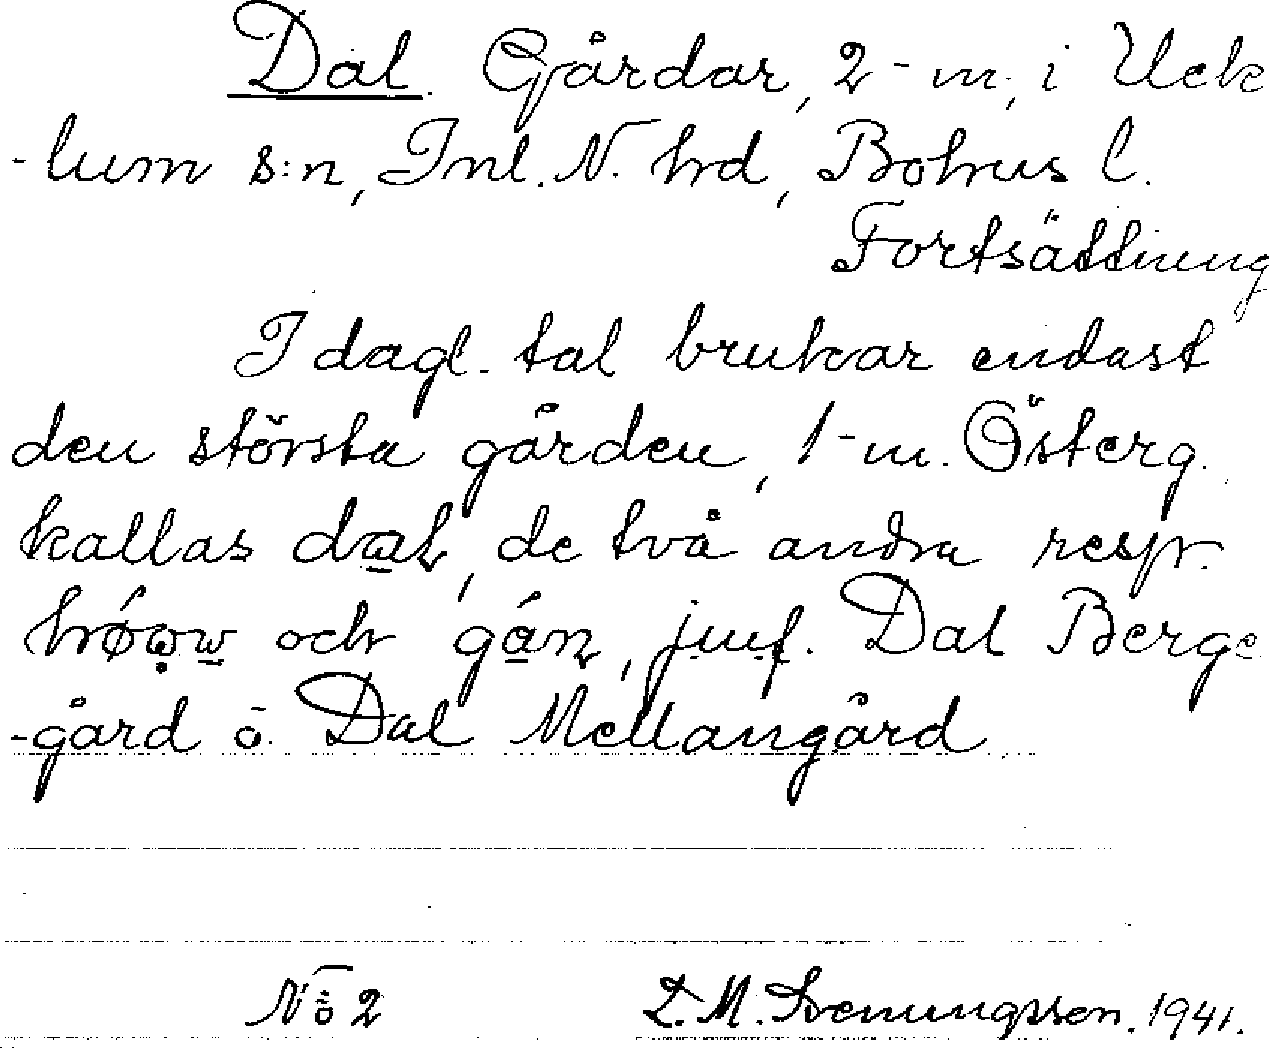 Dal. Gårdar, 2-m, i Uck
-lum s:n, Inl. N. hd, Bohus l.
Fortsättning
I dagl. tal brukar endast
den största gården, 1-m. Österg.
kallas de två andra resp.
och jmf. Dal Berge
-gård o. Dal Mellangård
No 2 L. M. Svenungsson. 1941.